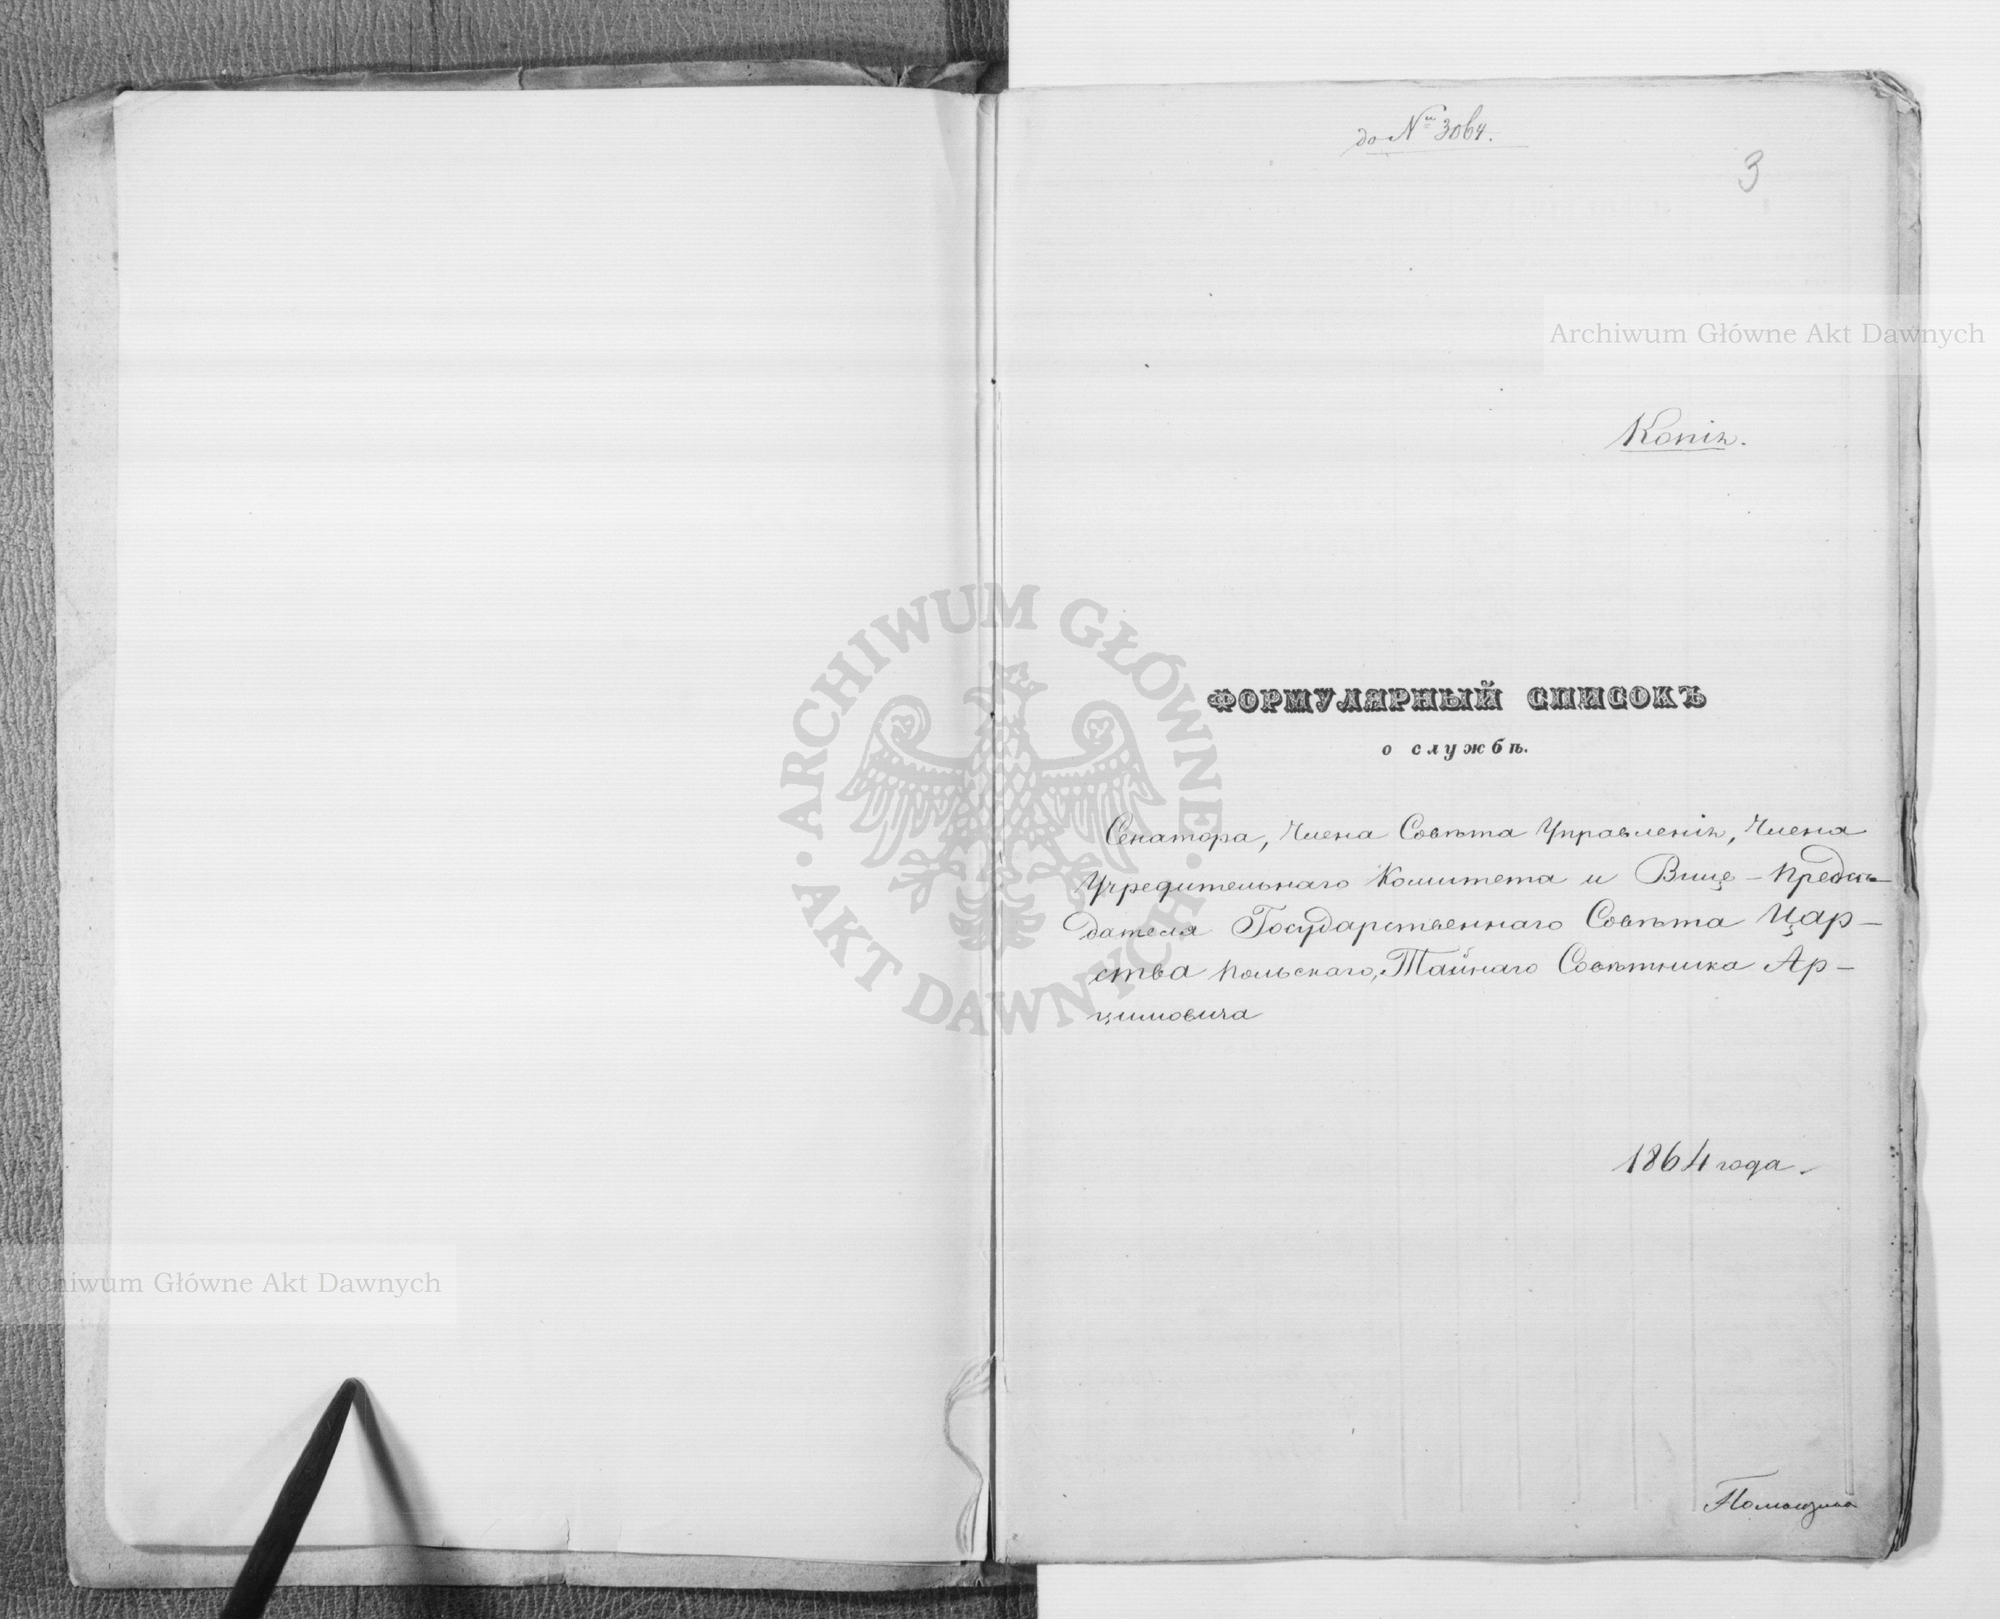 до № 3064.
3
Archiwum Główne Akt Dawnych
Копія.
ФОРМУЛЯРНЫЙ СПИСОКЪ
о службѣ.
Сенатора, Члена Совѣта Управленія, Члена
Учредительнаго Комитета и Вице-Предсѣ-
дателя Государственнаго Совѣта Цар-
ства Польскаго, Тайнаго Совѣтника Ар-
цимовича
1864 года.
ARCHIWUM GŁÓWNE AKT DAWNYCH
Archiwum Główne Akt Dawnych